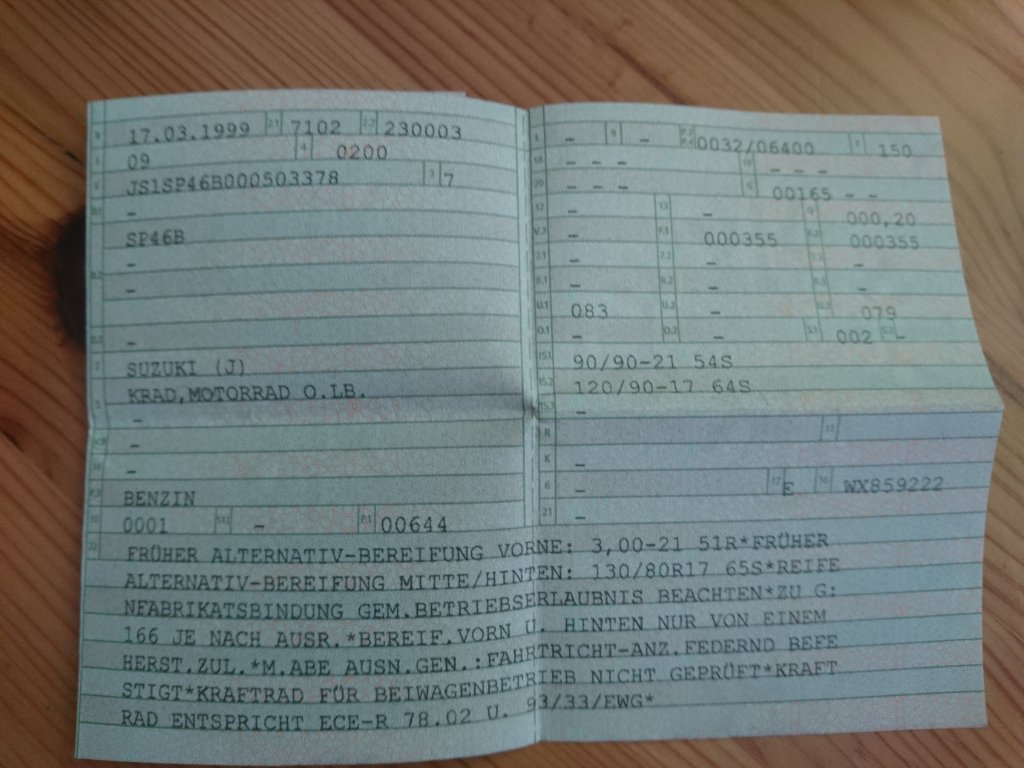 B 17.03.1999 2.1 7102 2.2 230003
J 09 4 0200
E JS1SP46B000503378 3 7
D.1 -
SP46B
-
D.2 -
D.3 -
2 SUZUKI (J)
KRAD,MOTORRAD O.LB.
5 -
V.9 -
14 -
P.3 BENZIN
10 0001 14.1 - P.1 00644
L - 9 - P.2 P.4 0032/06400 T 150
18 - - - 19 - - -
20 - - - G 00165 - -
12 - 13 - Q 000,20
V.7 - F.1 000355 F.2 000355
7.1 - 7.2 - 7.3 -
8.1 - 8.2 - 8.3 -
U.1 083 U.2 - U.3 079
O.1 - O.2 - S.1 002 S.2 -
15.1 90/90-21 54S
15.2 120/90-17 64S
15.3 -
R 11
K -
6 - 17 E 16 WX859222
21 -
22 FRÜHER ALTERNATIV-BEREIFUNG VORNE: 3,00-21 51R*FRÜHER
ALTERNATIV-BEREIFUNG MITTE/HINTEN: 130/80R17 65S*REIFE
NFABRIKATSBINDUNG GEM.BETRIEBSERLAUBNIS BEACHTEN*ZU G:
166 JE NACH AUSR.*BEREIF.VORN U. HINTEN NUR VON EINEM
HERST.ZUL.*M.ABE AUSN.GEN.:FAHRTRICHT-ANZ.FEDERND BEFE
STIGT*KRAFTRAD FÜR BEIWAGENBETRIEB NICHT GEPRÜFT*KRAFT
RAD ENTSPRICHT ECE-R 78.02 U. 93/33/EWG*